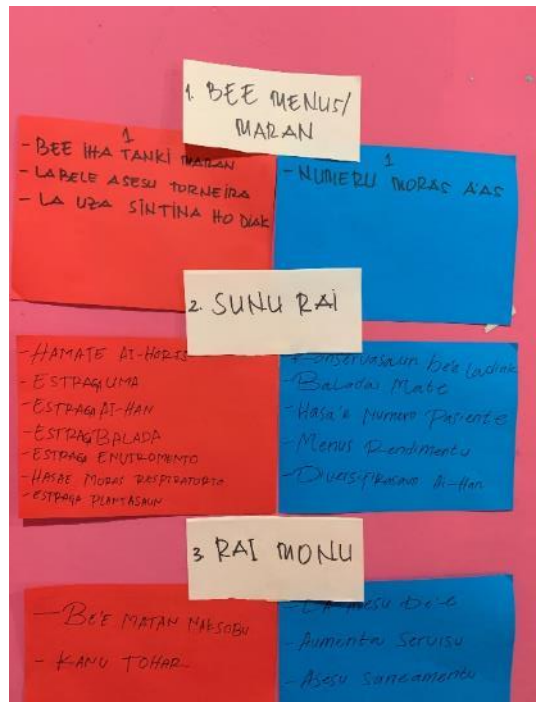 1. BEE MENUS/
MARAN
1
- BEE IHA TANKI MARAN
- LABELE ASESU TORNEIRA
- LA UZA SINTINA HO DIAK
1
- NUMERU MORAS A'AS
2. SUNU RAI
- HAMATE AI-HORIS
- ESTRAGA UMA
- ESTRAGA AI-HAN
- ESTRAGA BALADA
- ESTRAGA ENVIROMENTO
- HASAE MORAS RESPIRATORIO
- ESTRAGA PLANTASAUN
- Konservasaun be'e ladiak
- Baladas Mate
- Hasa'e Numero Pasiente
- Menus Rendimentu
- Diversifikasaun Ai-Han
3 RAI MONU
- BE'E MATAN NAKSOBU
- KANU TOHAR
- La Asesu be'e
- Aumenta Servisu
- Asesu Saneamentu